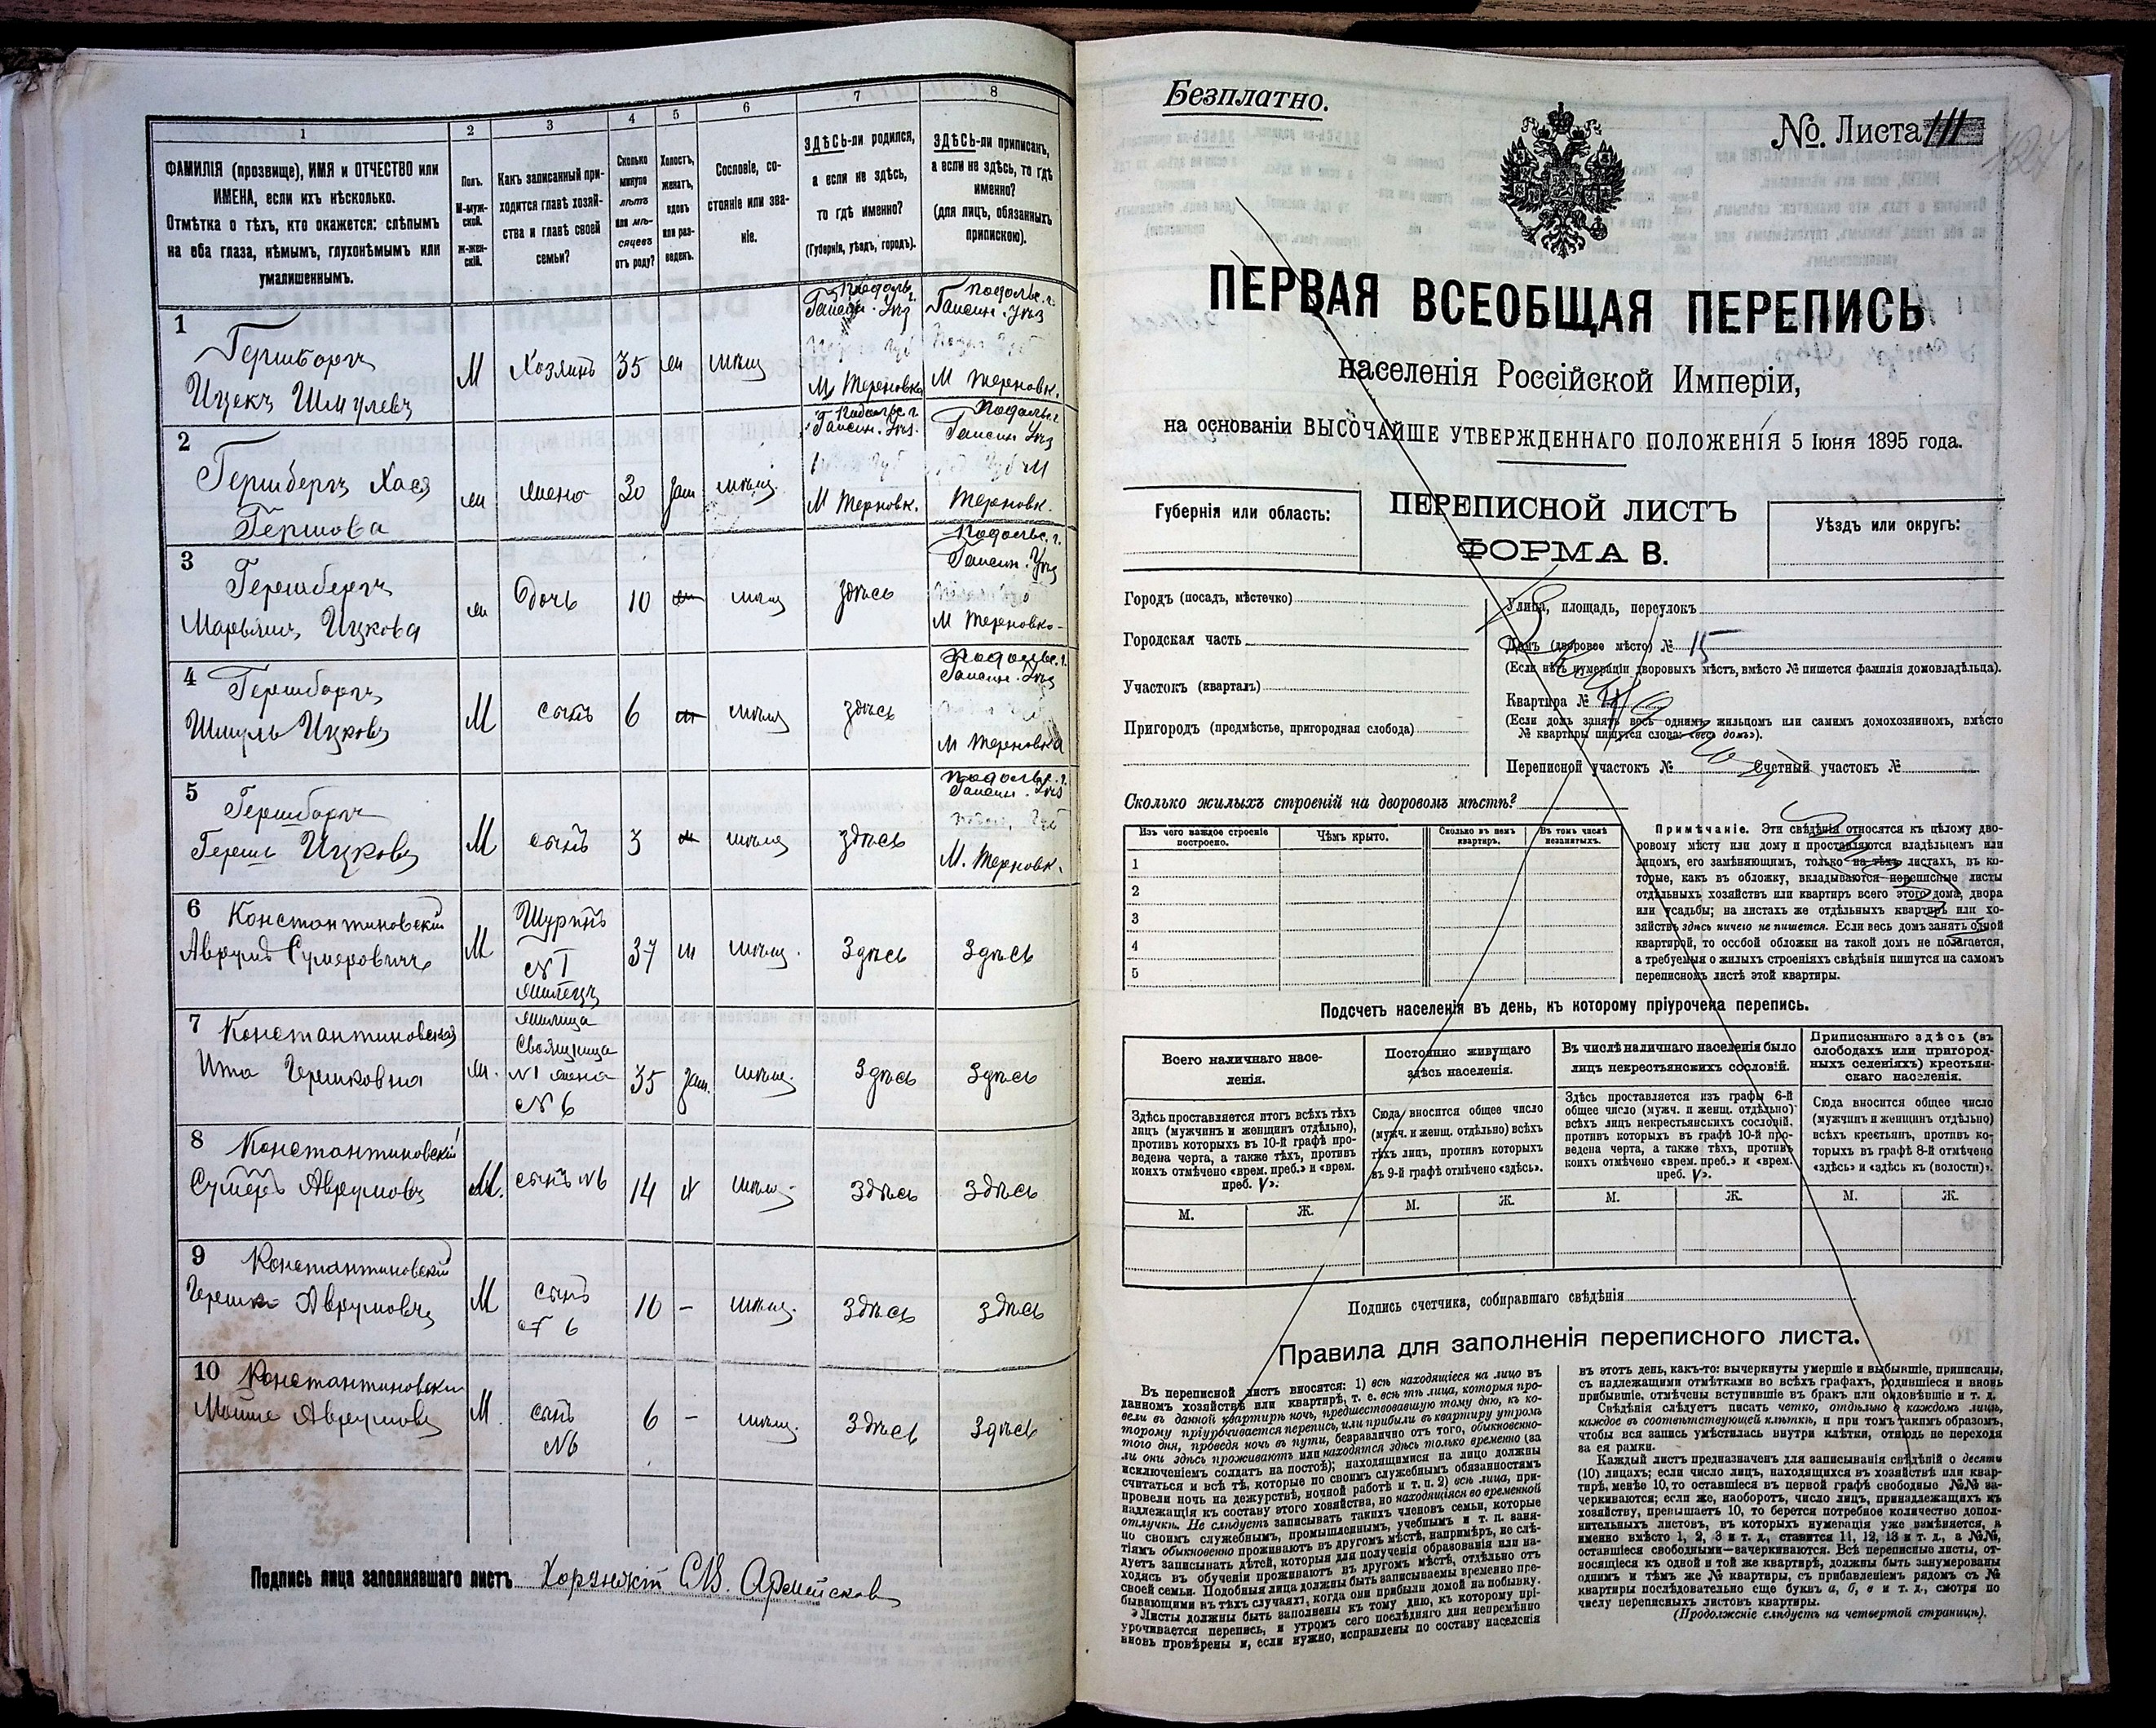 1
2
3
4
5
6
7
8
ФАМИЛІЯ (прозвище), ИМЯ и ОТЧЕСТВО или
ИМЕНА, если ихъ нѣсколько.
Отмѣтка о тѣхъ, кто окажется: слѣпымъ
на оба глаза, нѣмымъ, глухонѣмымъ или
умалишеннымъ.
Полъ.
М-муж-
ской.
ж-жен-
скій.
Какъ записанный при-
ходится главѣ хозяй-
ства и главѣ своей
семьи?
Сколько
минуло
лѣтъ
или мѣ-
сяцевъ
отъ роду?
Холостъ,
женатъ,
вдовъ
или раз-
веденъ.
Сословіе, со-
стояніе или зва-
ніе.
ЗДѢСЬ-ли родился,
а если не здѣсь,
то гдѣ именно?
(Губернія, уѣздъ, городъ).
ЗДѢСЬ-ли приписанъ,
а если не здѣсь, то гдѣ
именно?
(для лицъ, обязанныхъ
припискою).
1
Гершбергъ
Ицекъ Шмулевъ
М Хозяинъ 35 жен мѣщ
Подольс. г.
Гайсин. Уѣз
М Терновка
Подольс. г.
Гайсин. Уѣз
М Терновк.
2
Гершбергъ Хася
Гершова
жен жена 30 зам мѣщ.
Подольс. г.
Гайсин. Уѣз.
М Терновк.
Подольс. г.
Гайсин Уѣз
М
Терновк.
3
Гершбергъ
Ицкова
жен дочь 10 мѣщ здѣсь
Подольс. г.
Гайсин. Уѣз
М Терновко
4
Гершбергъ
Шмуль Ицковъ
М сынъ 6 мѣщ здѣсь
Подольс. г.
Гайсин. Уѣз
М Терновка
5
Гершбергъ
Гершъ Ицковъ
М сынъ 3 мѣщ здѣсь
Подольс. г.
Гайсин. Уѣз
М. Терновк.
6 Константиновскій
Аврумъ Сумеровичъ
М Шуринъ
№ 1
жилецъ
37 ж мѣщ. Здѣсь Здѣсь
7 Константиновская
Ита Гершковна
ж. жилица
Свояченица
№ 1 жена
№ 6
35 зам. мѣщ. Здѣсь Здѣсь
8 Константиновскій
Сумеръ Аврумовъ
М. сынъ №6 14 х мѣщ. Здѣсь Здѣсь
9 Константиновскій
Гершко Аврумовъ
М сынъ
№ 6
10 – мѣщ. Здѣсь Здѣсь
10 Константиновскій
Мойше Аврумовъ
М. сынъ
№6
6 – мѣщ. Здѣсь Здѣсь
Подпись лица заполнявшаго листъ Хорунжій
Безплатно.
№. Листа 111
ПЕРВАЯ ВСЕОБЩАЯ ПЕРЕПИСЬ
населенія Россійской Имперіи,
на основаніи ВЫСОЧАЙШЕ УТВЕРЖДЕННАГО ПОЛОЖЕНІЯ 5 Іюня 1895 года.
Губернія или область:
ПЕРЕПИСНОЙ ЛИСТЪ
ФОРМА В.
Уѣздъ или округъ:
Городъ (посадъ, мѣстечко)
Городская часть
Участокъ (кварталъ)
Пригородъ (предмѣстье, пригородная слобода)
Улица, площадь, переулокъ
Домъ (дворовое мѣсто) № 15
(Если нѣтъ нумераціи дворовыхъ мѣстъ, вмѣсто № пишется фамилія домовладѣльца).
Квартира №
(Если домъ занятъ весь однимъ жильцомъ или самимъ домохозяиномъ, вмѣсто
№ квартиры пишутся слова: «весь домъ»).
Переписной участокъ № Счетный участокъ №
Сколько жилыхъ строеній на дворовомъ мѣстѣ?
Изъ чего каждое строеніе
построено.
Чѣмъ крыто.
Сколько въ немъ
квартиръ.
Въ томъ числѣ
незанятыхъ.
1
2
3
4
5
Примѣчаніе. Эти свѣдѣнія относятся къ цѣлому дво-
ровому мѣсту или дому и проставляются владѣльцемъ или
лицомъ, его замѣняющимъ, только на тѣхъ листахъ, въ ко-
торые, какъ въ обложку, вкладываются переписные листы
отдѣльныхъ хозяйствъ или квартиръ всего этого дома, двора
или усадьбы; на листахъ же отдѣльныхъ квартиръ или хо-
зяйствъ здѣсь ничего не пишется. Если весь домъ занятъ одной
квартирой, то особой обложки на такой домъ не полагается,
а требуемыя о жилыхъ строеніяхъ свѣдѣнія пишутся на самомъ
переписномъ листѣ этой квартиры.
Подсчетъ населенія въ день, къ которому пріурочена перепись.
Всего наличнаго насе-
ленія.
Постоянно живущаго
здѣсь населенія.
Въ числѣ наличнаго населенія было
лицъ некрестьянскихъ сословій.
Приписаннаго здѣсь (въ
слободахъ или пригород-
ныхъ селеніяхъ) крестьян-
скаго населенія.
Здѣсь проставляется итогъ всѣхъ тѣхъ
лицъ (мужчинъ и женщинъ отдѣльно),
противъ которыхъ въ 10-й графѣ про-
ведена черта, а также тѣхъ, противъ
коихъ отмѣчено «врем. преб.» и «врем.
преб. V».
Сюда вносится общее число
(мужч. и женщ. отдѣльно) всѣхъ
тѣхъ лицъ, противъ которыхъ
въ 9-й графѣ отмѣчено «здѣсь».
Здѣсь проставляется изъ графы 6-й
общее число (мужч. и женщ. отдѣльно)
всѣхъ лицъ некрестьянскихъ сословій,
противъ которыхъ въ графѣ 10-й про-
ведена черта, а также тѣхъ, противъ
коихъ отмѣчено «врем. преб.» и «врем.
преб. V».
Сюда вносится общее число
(мужчинъ и женщинъ отдѣльно)
всѣхъ крестьянъ, противъ ко-
торыхъ въ графѣ 8-й отмѣчено
«здѣсь» и «здѣсь къ (волости)».
М. Ж. М. Ж. М. Ж. М. Ж.
Подпись счетчика, собиравшаго свѣдѣнія
Правила для заполненія переписного листа.
Въ переписной листъ вносятся: 1) всѣ находящіеся на лицо въ
данномъ хозяйствѣ или квартирѣ, т. е. всѣ тѣ лица, которыя про-
вели въ данной квартирѣ ночь, предшествовавшую тому дню, къ ко-
торому пріурочивается перепись, или прибыли въ квартиру утромъ
того дня, проведя ночь въ пути, безразлично отъ того, обыкновенно-
ли они здѣсь проживаютъ или находятся здѣсь только временно (за
исключеніемъ солдатъ на постоѣ); находящимися на лицо должны
считаться и всѣ тѣ, которые по своимъ служебнымъ обязанностямъ
провели ночь на дежурствѣ, ночной работѣ и т. п. 2) всѣ лица, при-
надлежащія къ составу этого хозяйства, но находящіяся во временной
отлучкѣ. Не слѣдуетъ записывать такихъ членовъ семьи, которые
по своимъ служебнымъ, промышленнымъ, учебнымъ и т. п. заня-
тіямъ обыкновенно проживаютъ въ другомъ мѣстѣ, напримѣръ, не слѣ-
дуетъ записывать дѣтей, которыя для полученія образованія или на-
ходясь въ обученіи проживаютъ въ другомъ мѣстѣ, отдѣльно отъ
своей семьи. Подобныя лица должны быть записываемы временно пре-
бывающими въ тѣхъ случаяхъ, когда они прибыли домой на побывку.
Листы должны быть заполнены къ тому дню, къ которому прі-
урочивается перепись, и утромъ сего послѣдняго дня непремѣнно
вновь провѣрены и, если нужно, исправлены по составу населенія
въ этотъ день, какъ-то: вычеркнуты умершіе и выбывшіе, приписаны,
съ надлежащими отмѣтками во всѣхъ графахъ, родившіеся и вновь
прибывшіе, отмѣчены вступившіе въ бракъ или овдовѣвшіе и т. д.
Свѣдѣнія слѣдуетъ писать четко, отдѣльно о каждомъ лицѣ,
каждое въ соотвѣтствующей клѣткѣ, и при томъ такимъ образомъ,
чтобы вся запись умѣстилась внутри клѣтки, отнюдь не переходя
за ея рамки.
Каждый листъ предназначенъ для записыванія свѣдѣній о десяти
(10) лицахъ; если число лицъ, находящихся въ хозяйствѣ или квар-
тирѣ, менѣе 10, то оставшіеся въ первой графѣ свободные №№ за-
черкиваются; если же, наоборотъ, число лицъ, принадлежащихъ къ
хозяйству, превышаетъ 10, то берется потребное количество допол-
нительныхъ листовъ, въ которыхъ нумерація уже измѣняется, а
именно вмѣсто 1, 2, 3 и т. д., ставится 11, 12, 13 и т. д., а №№,
оставшіеся свободными—зачеркиваются. Всѣ переписные листы, от-
носящіеся къ одной и той же квартирѣ, должны быть занумерованы
однимъ и тѣмъ же № квартиры, съ прибавленіемъ рядомъ съ №
квартиры послѣдовательно еще буквъ а, б, в и т. д., смотря по
числу переписныхъ листовъ квартиры.
(Продолженіе слѣдуетъ на четвертой страницѣ).